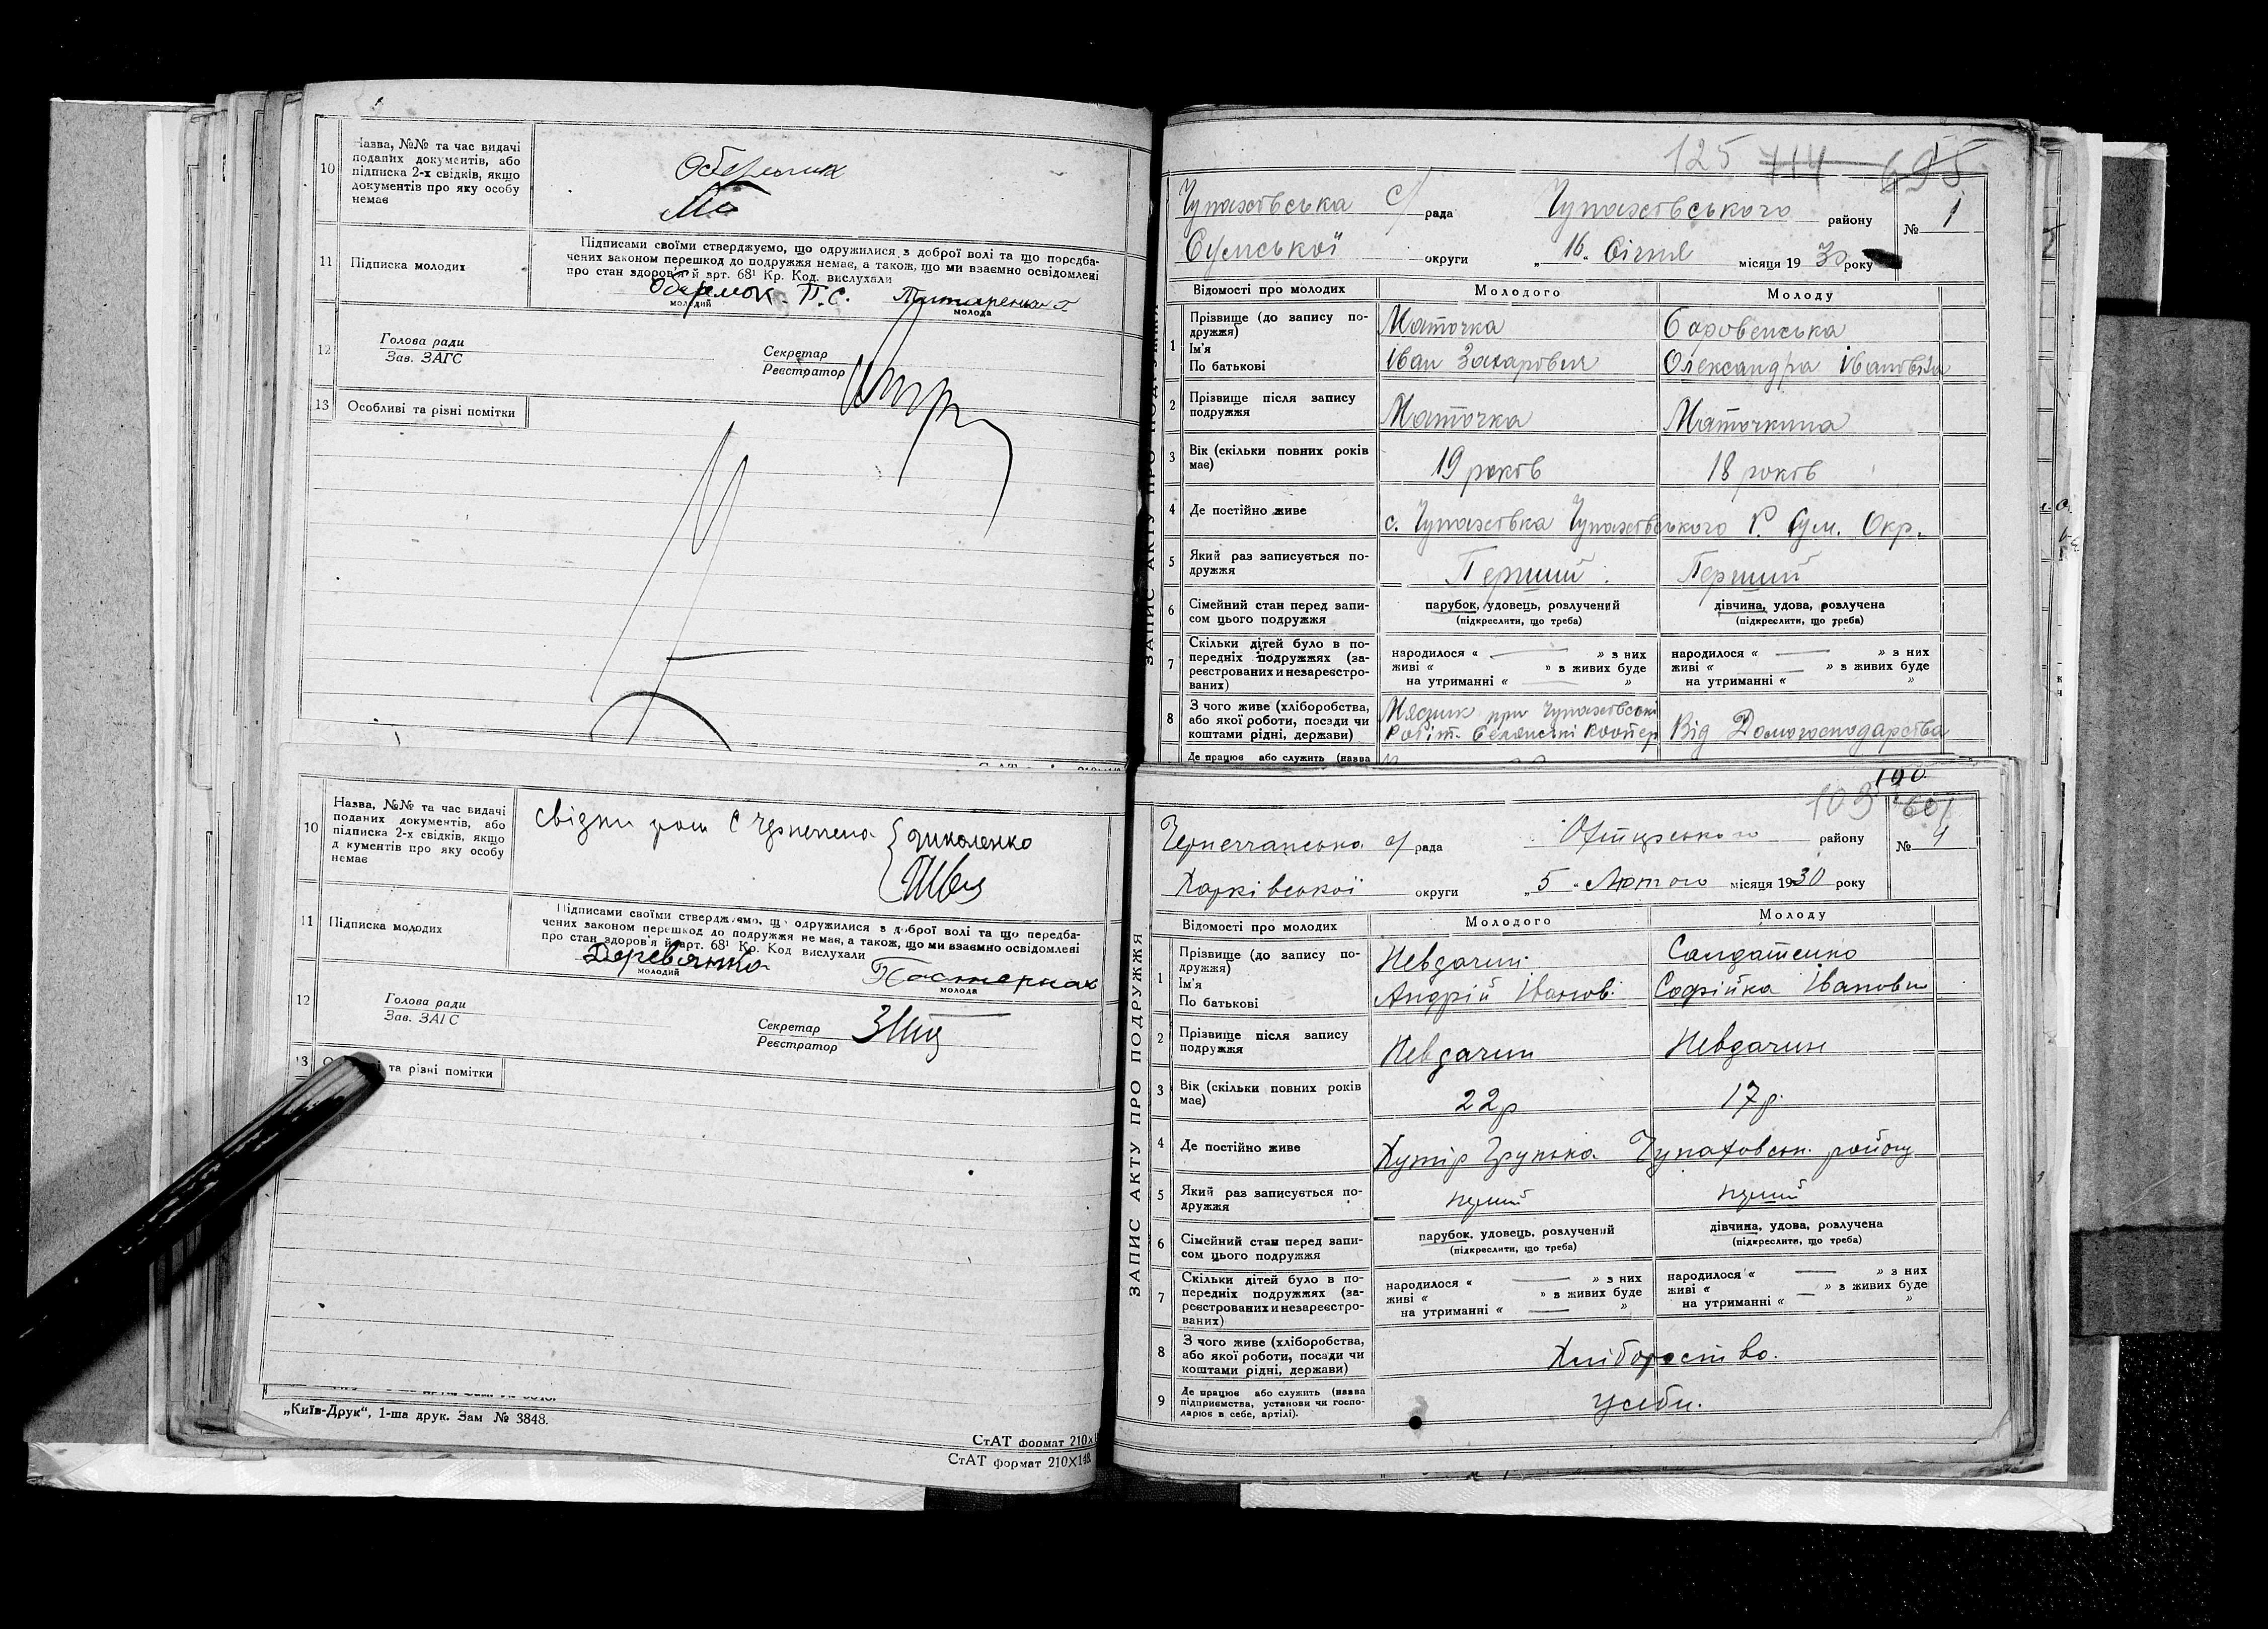 10
Назва, №№ та час видачі
поданих документів, або
підписка 2-х свідків, якщо
документів про яку особу
немає
11
Підписка молодих
Підписами своїми стверджуємо, що одружилися з доброї волі та що передба-
чених законом перешкод до подружжя немає, а також, що ми взаємно освідомлені
про стан здоров'я й арт. 68¹ Кр. Код. вислухали
Оберемок. П. С.
молодий
молода
12
Голова ради
Зав. ЗАГС
Секретар
Реєстратор
13
Особливі та різні помітки
10
Назва, №№ та час видачі
поданих документів, або
підписка 2-х свідків, якщо
д кументів про яку особу
немає
свідки
11
Підписка молодих
Підписами своїми стверджуємо, що одружилися з доброї волі та що передба-
чених законом перешкод до подружжя немає, а також, що ми взаємно освідомлені
про стан здоров'я й арт. 68¹ Кр. Код вислухали
Деревянко
молодий
Пастернак
молода
12
Голова ради
Зав. ЗАГС
Секретар
Реєстратор
13
та різні помітки
„Київ-Друк“, 1-ша друк. Зам № 3848.
СтАТ формат 210×1
СтАТ формат 210×148
125 714 695
Чупахівська с/ рада Чупахівського району № 1
Сумської округи „16„ Січня місяця 1930 року
Відомості про молодих
Молодого
Молоду
1
Прізвище (до запису по-
дружжя)
Ім'я
По батькові
Маточка
Іван Захарович
Боровенська
Олександра Івановна
2
Прізвище після запису
подружжя
Маточка
Маточкина
3
Вік (скільки повних років
має)
19 років
18 років
4
Де постійно живе
с. Чупахівка Чупахівського Р. Сум. Окр.
5
Який раз записується по-
дружжя
Перший
Перший
6
Сімейний стан перед запи-
сом цього подружжя
парубок, удовець, розлучений
(підкреслити, що треба)
дівчина, удова, розлучена
(підкреслити, що треба)
7
Скільки дітей було в по-
передніх подружжях (за-
реєстрованих и незареєстро-
ваних)
народилося « » з них
живі « » з живих буде
на утриманні « »
народилося « » з них
живі « » з живих буде
на утриманні « »
8
З чого живе (хліборобства,
або якої роботи, посади чи
коштами рідні, держави)
при Чупахівські
Робіт. Селянські Коопер
Від Домогосподарства
Де працює або служить (назва
ЗАПИС АКТУ ПРО ПОДРУЖЖЯ
103 190
601
Чернеччанська с/ рада Охтирського району № 4
Харківської округи „5„ Лютого місяця 1930 року
Відомості про молодих
Молодого
Молоду
1
Прізвище (до запису по-
дружжя)
Ім'я
По батькові
Невдачин
Андрій Іванов.
Солдатенко
Софійка Івановн
2
Прізвище після запису
подружжя
Невдачин
Невдачин
3
Вік (скільки повних років
має)
22р
17р.
4
Де постійно живе
Хутір Грунька Чупаховськ. району
5
Який раз записується по-
дружжя
6
Сімейний стан перед запи-
сом цього подружжя
парубок, удовець, розлучений
(підкреслити, що треба)
дівчина, удова, розлучена
(підкреслити, що треба)
7
Скільки дітей було в по-
передніх подружжях (за-
реєстрованих и незареєстро-
ваних)
народилося « » з них
живі « » з живих буде
на утриманні « »
народилося « » з них
живі « » з живих буде
на утриманні « »
8
З чого живе (хліборобства,
або якої роботи, посади чи
коштами рідні, держави)
9
Де працює або служить (назва
підприємства, установи чи госпо-
дарює в себе, артілі).
усеби.
ЗАПИС АКТУ ПРО ПОДРУЖЖЯ